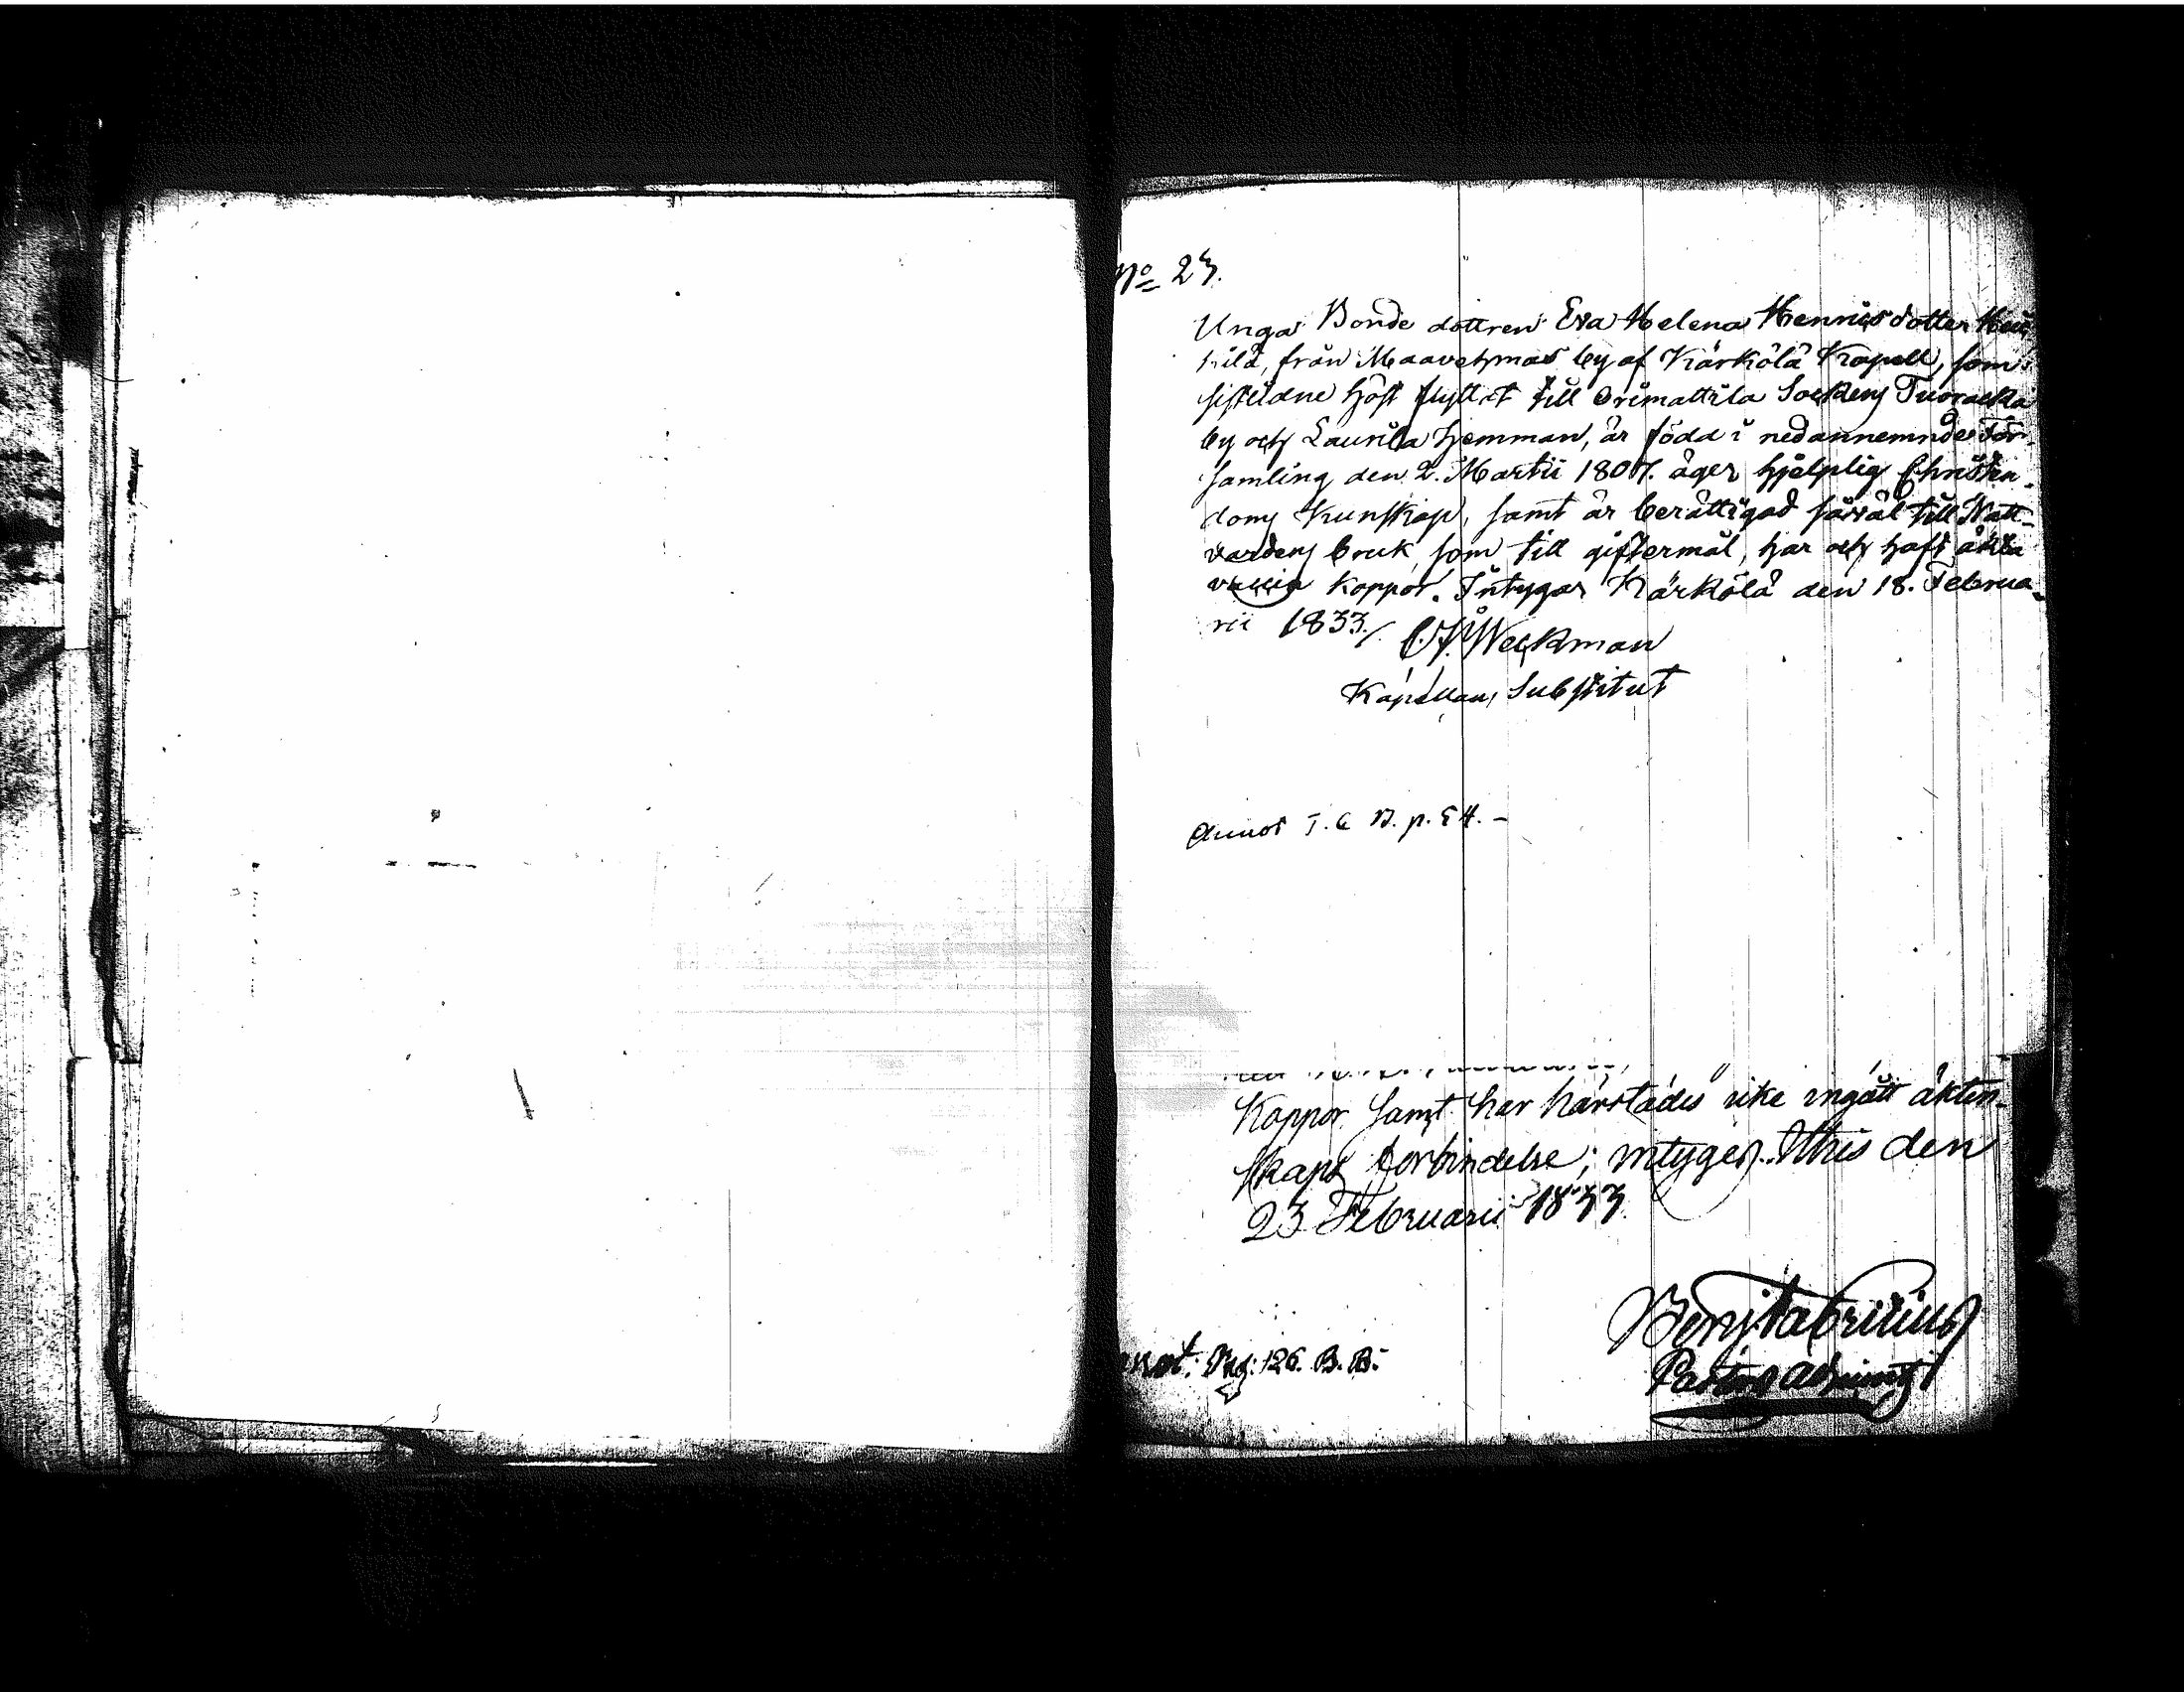 No 23.
Unga Bonde dottren Eva Helena Henricsdotter Heic
kilä, från Maavehmas by af Kärkölä Kapell, som
sistlidne höst flyttat till Orimattila Sockens Tuorakka
by och Laurila hemman, är född i nedannemnde För-
samling den 2. Martii 1807. äger hjelplig Christen-
doms Kunskap, samt är berättigad såväl till Natt-
vardens bruk, som till giftermål, har och haft äkta
vaccin koppor. Intygar Kärkölä den 18. Februa-
rii 1833./. C.J. Weckman
Kapellans Substitut
Annot T. C. B. p. 54. -
Koppor samt har härstädes icke ingått äkten-
skaps förbindelse; intygas. Ithis den
23 Februarii 1833.
Benj Fabricius
Pastors adjunct
nnot: Pag: 126. B. B.